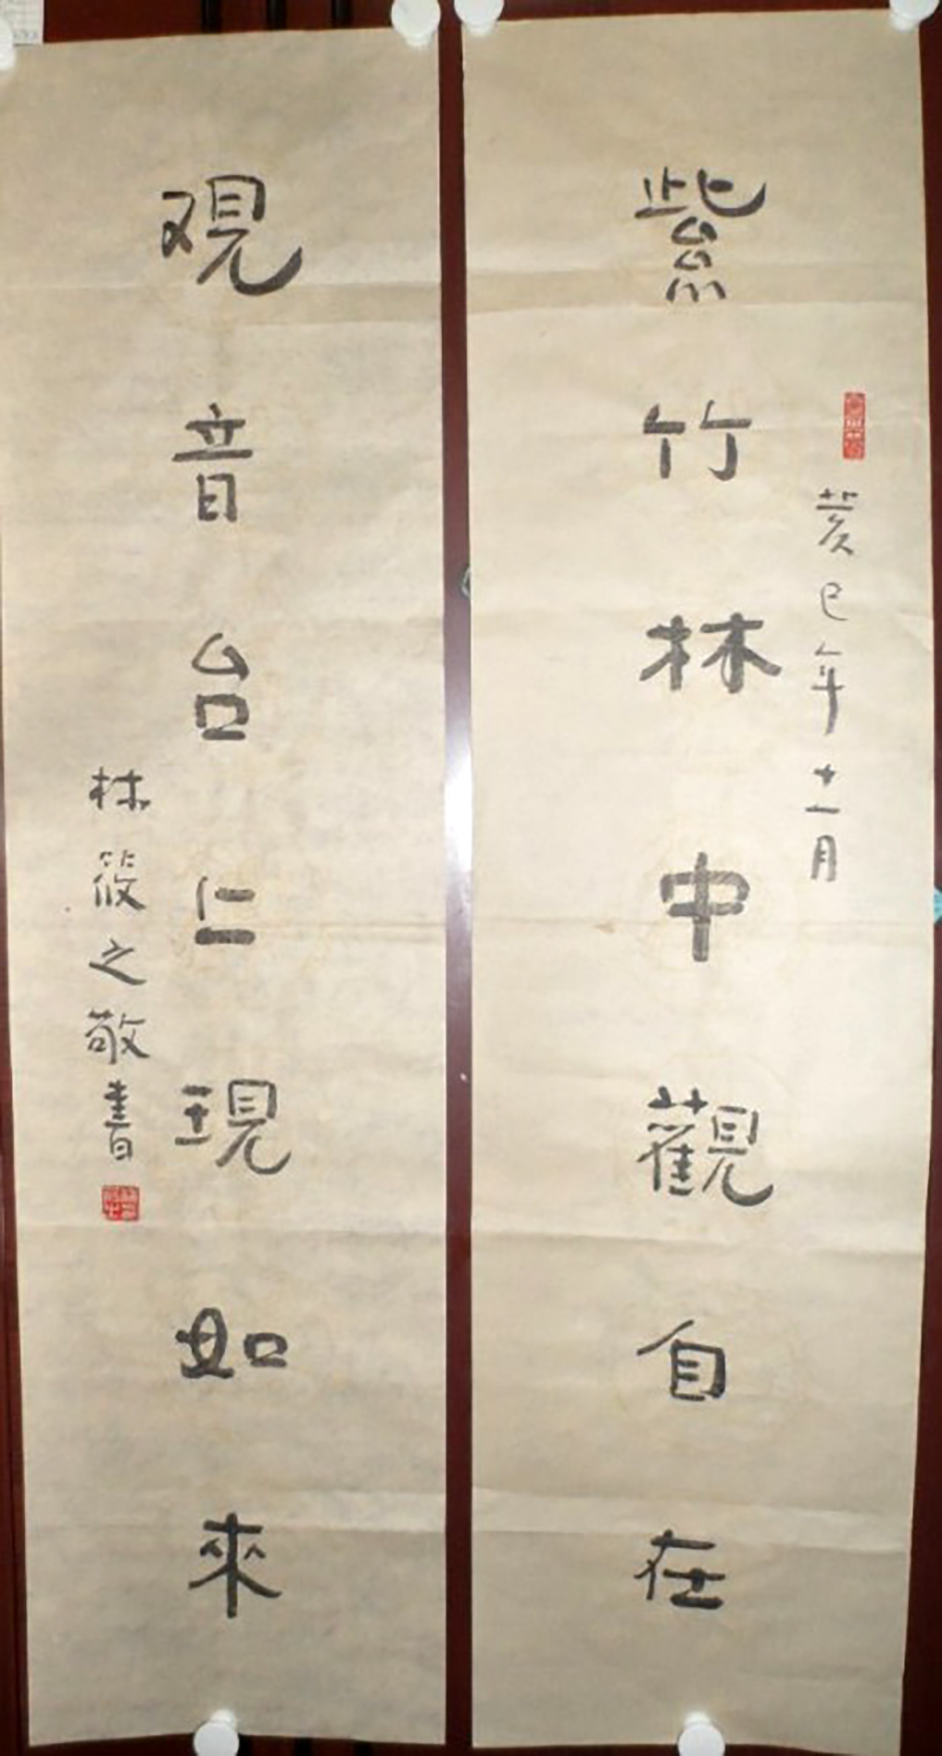 紫竹林中觀自在
癸巳年十一月
观音台仁現如來
林筱之敬書